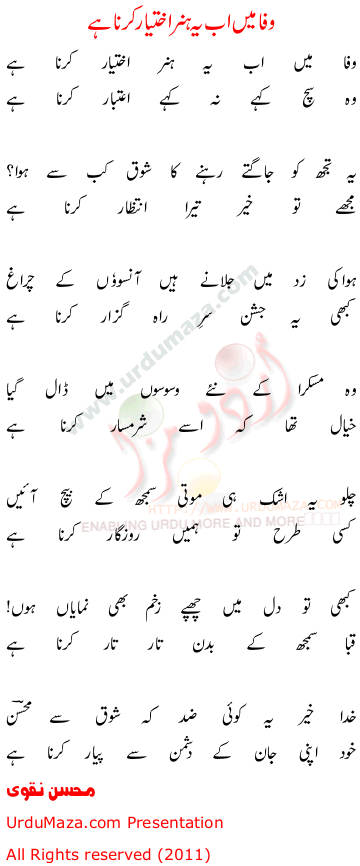 وفا میں اب یہ ہنر اختیار کرنا ہے
وفا میں اب یہ ہنر اختیار کرنا ہے
وہ سچ کہے نہ کہے اعتبار کرنا ہے
یہ تجھ کو جاگتے رہنے کا شوق کب سے ہوا؟
مجھے تو خیر تیرا انتظار کرنا ہے
ہوا کی زد میں جلانے ہیں آنسوؤں کے چراغ
کبھی یہ جشن سرِ راہ گزار کرنا ہے
وہ مسکرا کے نئے وسوسوں میں ڈال گیا
خیال تھا کہ اسے شرمسار کرنا ہے
چلو یہ اشک ہی موتی سمجھ کے بیچ آئیں
کسی طرح تو ہمیں روزگار کرنا ہے
کبھی تو دل میں چھپے زخم بھی نمایاں ہوں!
قبا سمجھ کے بدن تار تار کرنا ہے
خدا خیر یہ کوئی ضد کہ شوق سے محسنؔ
خود اپنی جان کے دشمن سے پیار کرنا ہے
محسن نقوی
UrduMaza.com Presentation
All Rights reserved (2011)
www.urdumaza.com
اُردو مزا
HTTP://WWW.URDUMAZA.COM
ENABLING URDU MORE AND MORE